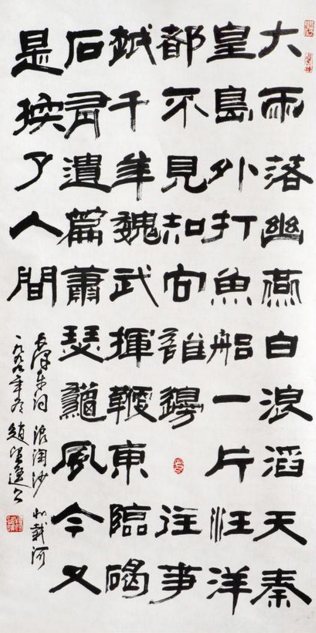 大雨落幽燕白浪滔天秦
皇島外打魚船一片汪洋
都不見知向誰邊往事
越千年魏武揮鞭東臨碣
石有遺篇蕭瑟龝風今又
是換了人間
毛澤東詞浪淘沙北戴河
一九九年冬趙